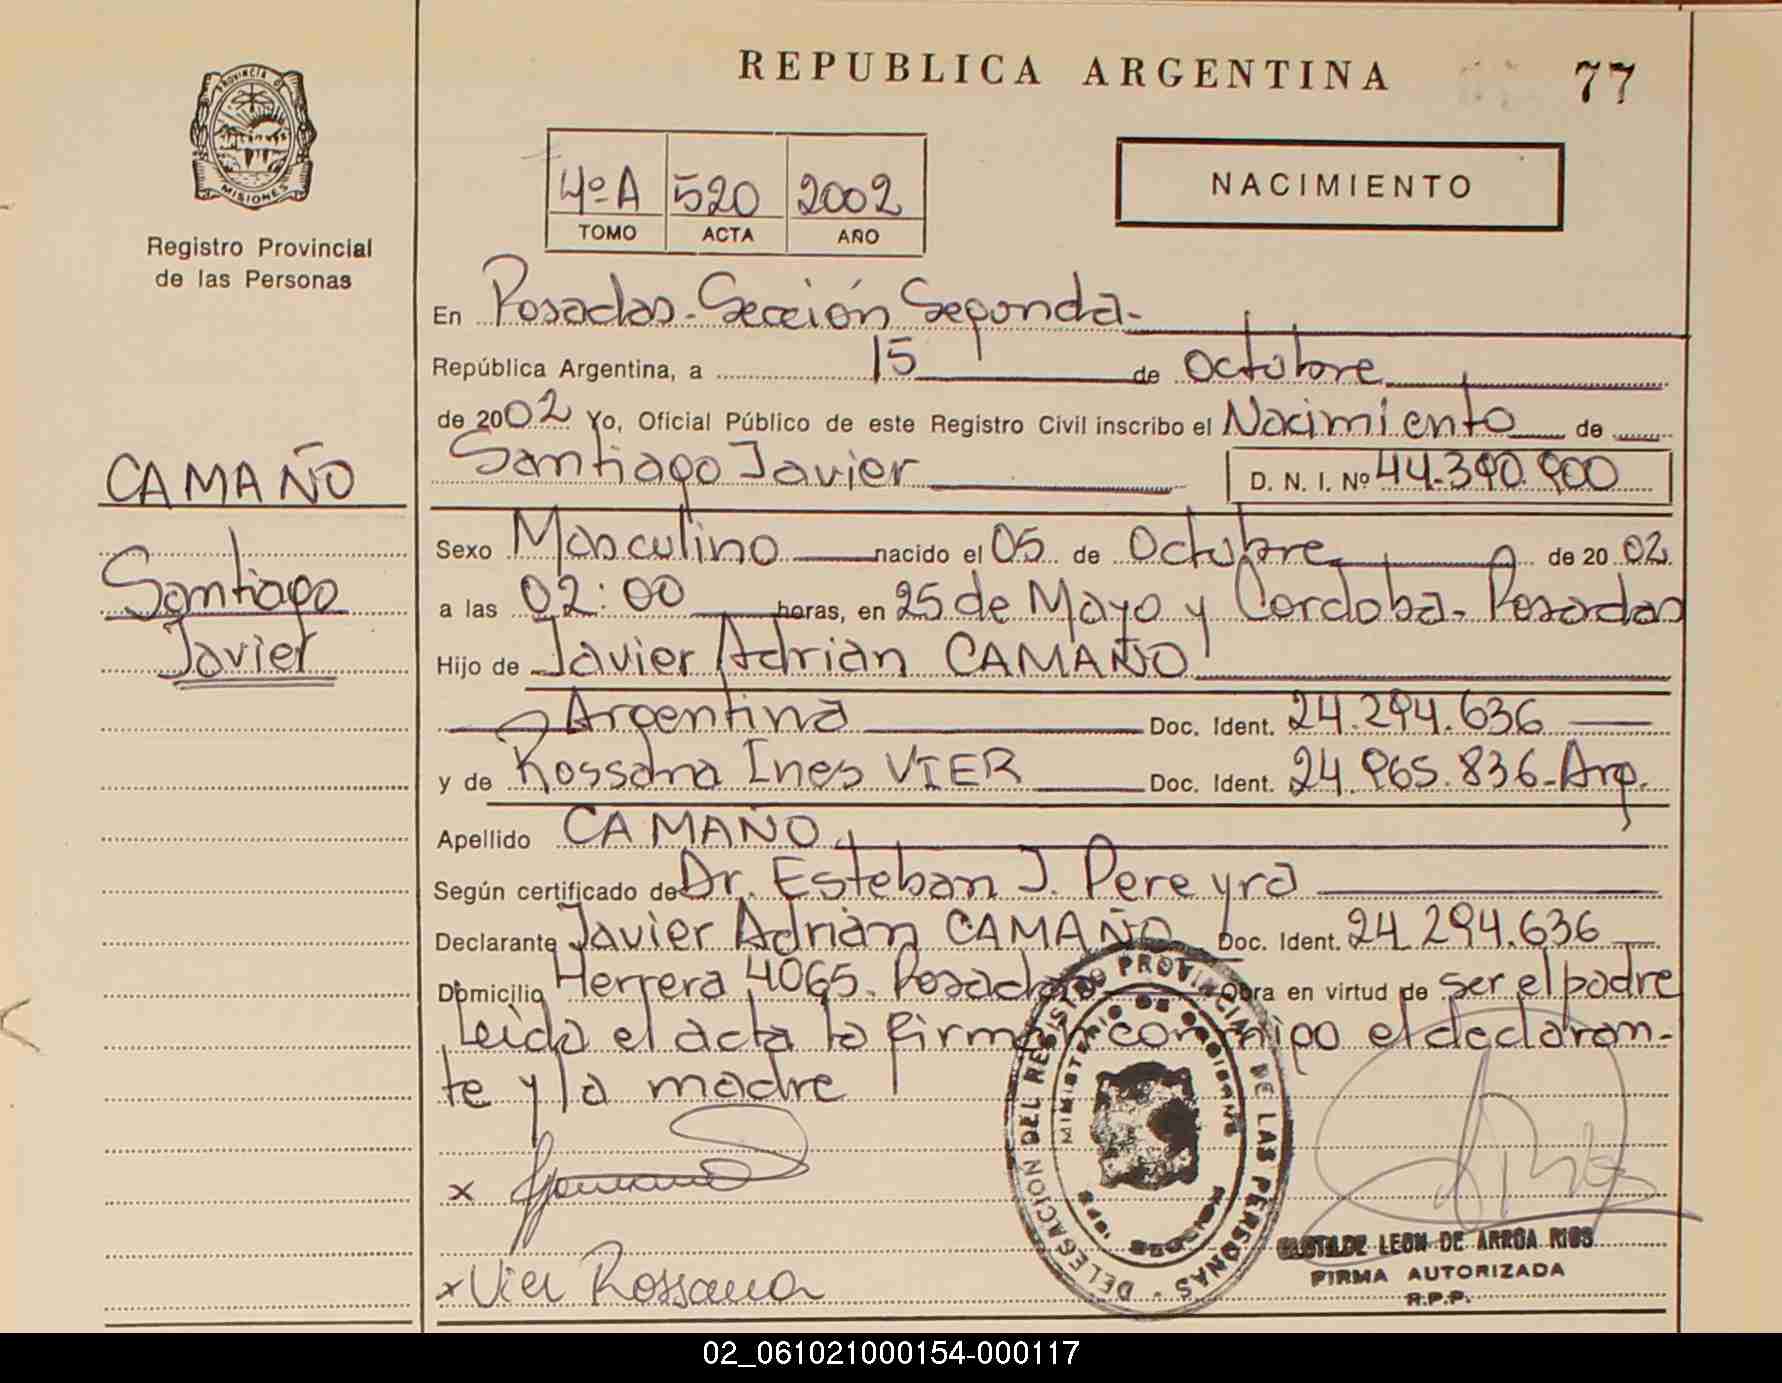 REPUBLICA ARGENTINA
77
PROVINCIA DE
MISIONES
Registro Provincial
de las Personas
4º A 520 2002
TOMO ACTA AÑO
NACIMIENTO
En Posadas - Sección Segunda -
República Argentina, a 15 de Octubre
de 2002 Yo, Oficial Público de este Registro Civil inscribo el Nacimiento de
Santiago Javier D. N. I. Nº 44.390.900
CAMAÑO
Santiago
Javier
Sexo Masculino nacido el 05 de Octubre de 2002
a las 02:00 horas, en 25 de Mayo y Cordoba - Posadas
Hijo de Javier Adrian CAMAÑO
Argentina Doc. Ident. 24.294.636
y de Rossana Ines VIER Doc. Ident. 24.965.836 - Arg.
Apellido CAMAÑO
Según certificado de Dr. Esteban J. Pereyra
Declarante Javier Adrián CAMAÑO Doc. Ident. 24.294.636
Domicilio Herrera 4065. Posadas Obra en virtud de ser el padre
Leida el acta la firman conmigo el declaran-
te y la madre
x
x Vier Rossana
DELEGACION DEL REGISTRO PROVINCIAL DE LAS PERSONAS
MINISTERIO DE GOBIERNO
LEON DE ARROA RIOS
FIRMA AUTORIZADA
R.P.P.
02_061021000154-000117